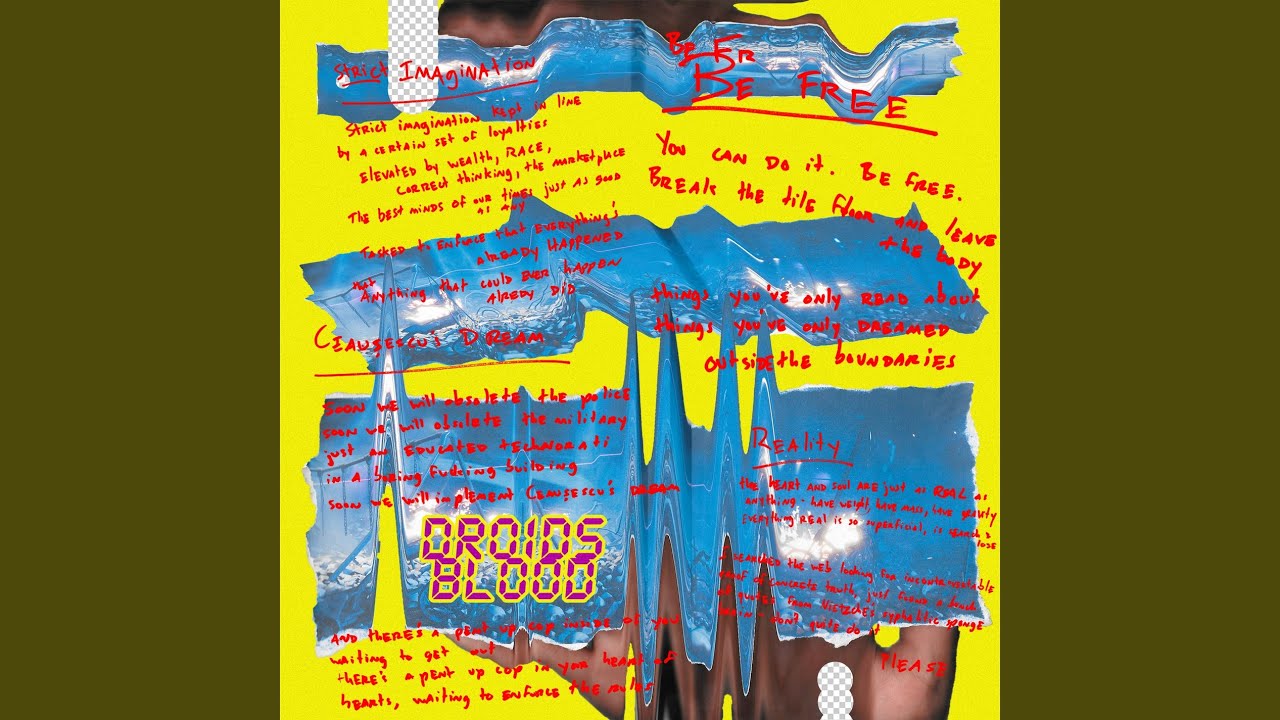 STRICT IMAGINATION
STRICT IMAGINATION KEPT IN LINE
BY A CERTAIN SET OF LOYALTIES
ELEVATED BY WEALTH, RACE,
CORRECT THINKING, THE MARKETPLACE
THE BEST MINDS OF OUR TIMES JUST AS GOOD
AS ANY
TASKED TO ENFORCE THAT EVERYTHING'S
ALREADY HAPPENED
THAT
ANYTHING THAT COULD EVER HAPPEN
ALREDY DID
CEAUȘESCU'S DREAM
SOON WE WILL OBSOLETE THE POLICE
SOON WE WILL OBSOLETE THE MILITARY
JUST AN EDUCATED TECHNORATI
IN A BORING FUCKING BUILDING
SOON WE WILL IMPLEMENT CEAUȘESCU'S DREAM
DROIDS
BLOOD
AND THERE'S A PENT UP COP INSIDE OF YOU
WAITING TO GET OUT
THERE'S A PENT UP COP IN YOUR HEART OF
HEARTS, WAITING TO ENFORCE THE RULES
BE FR
BE FREE
YOU CAN DO IT. BE FREE.
BREAK THE TILE FLOOR AND LEAVE
THE BODY
THINGS YOU'VE ONLY READ ABOUT
THINGS YOU'VE ONLY DREAMED
OUTSIDE THE BOUNDARIES
REALITY
THE HEART AND SOUL ARE JUST AS REAL AS
ANYTHING - HAVE WEIGHT, HAVE MASS, HAVE GRAVITY
EVERYTHING REAL IS SO SUPERFICIAL, IS SEARCH &
LOSE
I SEARCHED THE WEB LOOKING FOR INCONTROVERTABLE
PROOF OF CONCRETE TRUTH, JUST FOUND A BUNCH
OF QUOTES FROM NIETZCHE'S SYPHILITIC SPONGE
BRAIN - DON'T QUITE DO IT
PLEASE